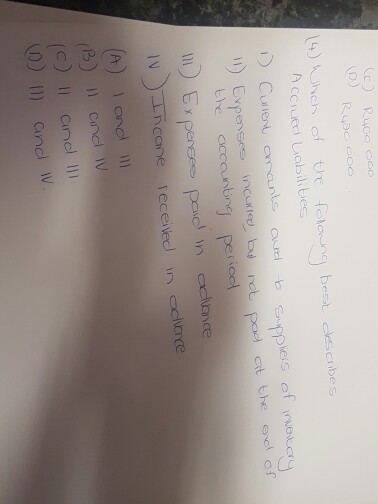 (C) R400 000
(D) R490 000
(4) Which of the following best describes
Accrued Liabilities
I) Current amounts owed to suppliers of inventory
II) Expenses incurred but not paid at the end of
the accounting period
III) Expenses paid in advance
IV) Income received in advance
(A) I and III
(B) II and IV
(C) II and III
(D) III and IV.